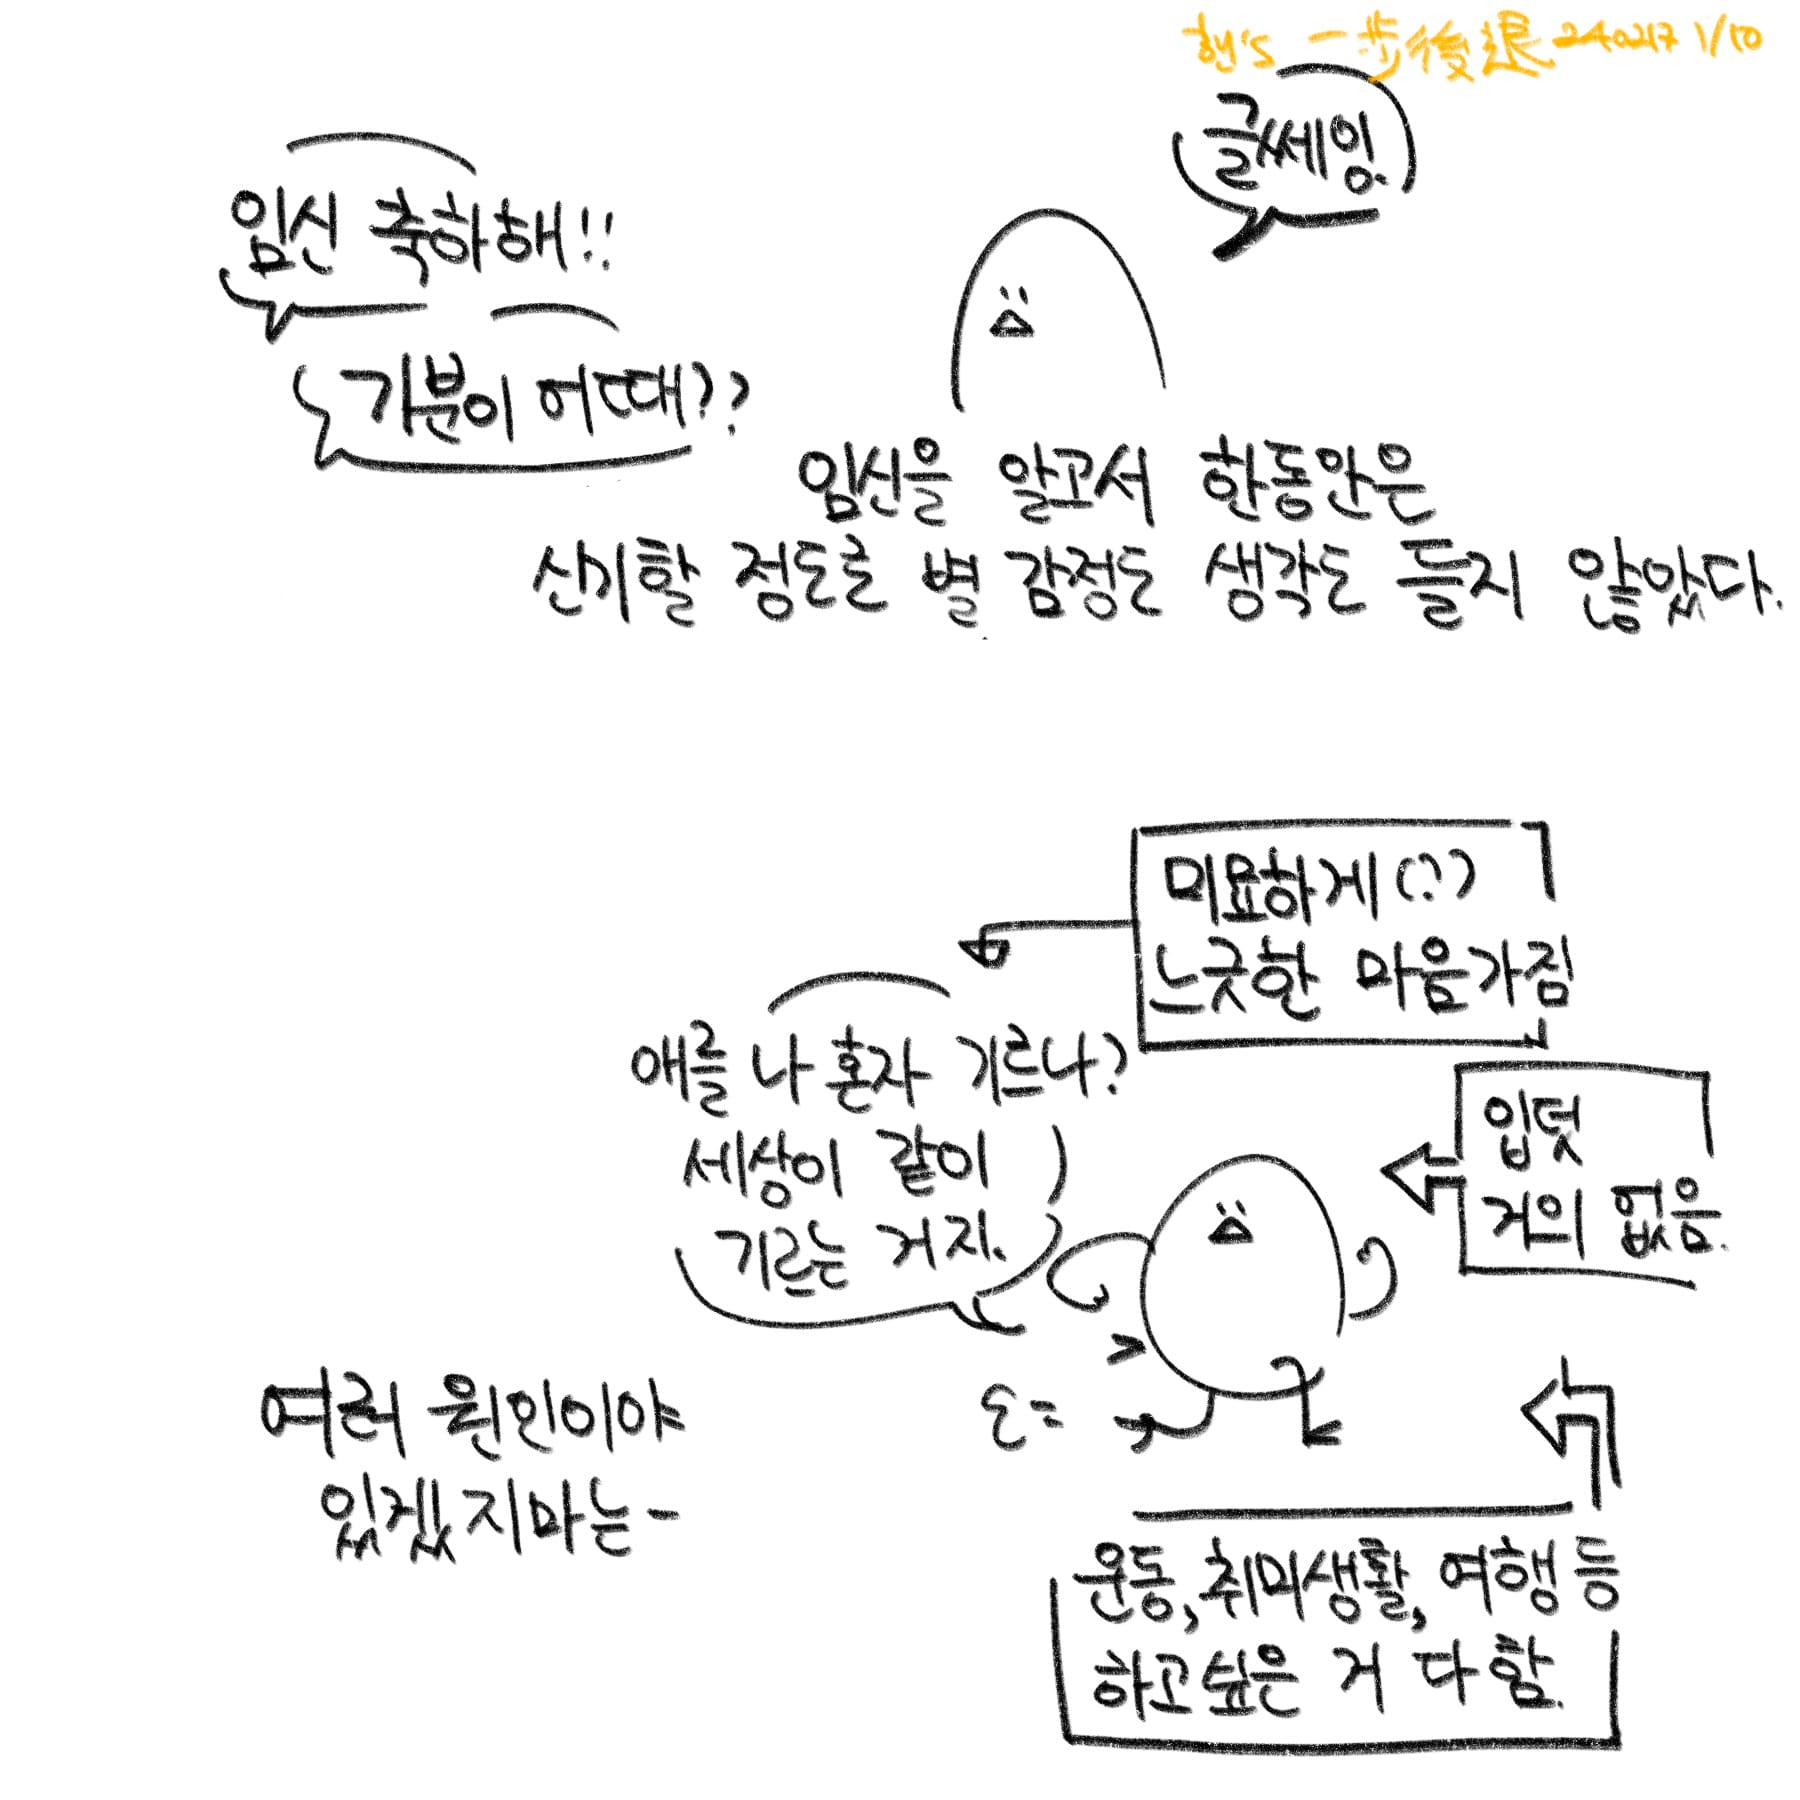 현's 一步後退 240217 1/10
임신 축하해!!
기분이 어때??
글쎄잉.
임신을 알고서 한동안은
신기할 정도로 별 감정도 생각도 들지 않았다.
미묘하게(?)
느긋한 마음가짐
애를 나 혼자 기르나?
세상이 같이
기르는 거지.
입덧
거의 없음.
여러 원인이야
있겠지마는-
운동, 취미생활, 여행 등
하고싶은 거 다 함.